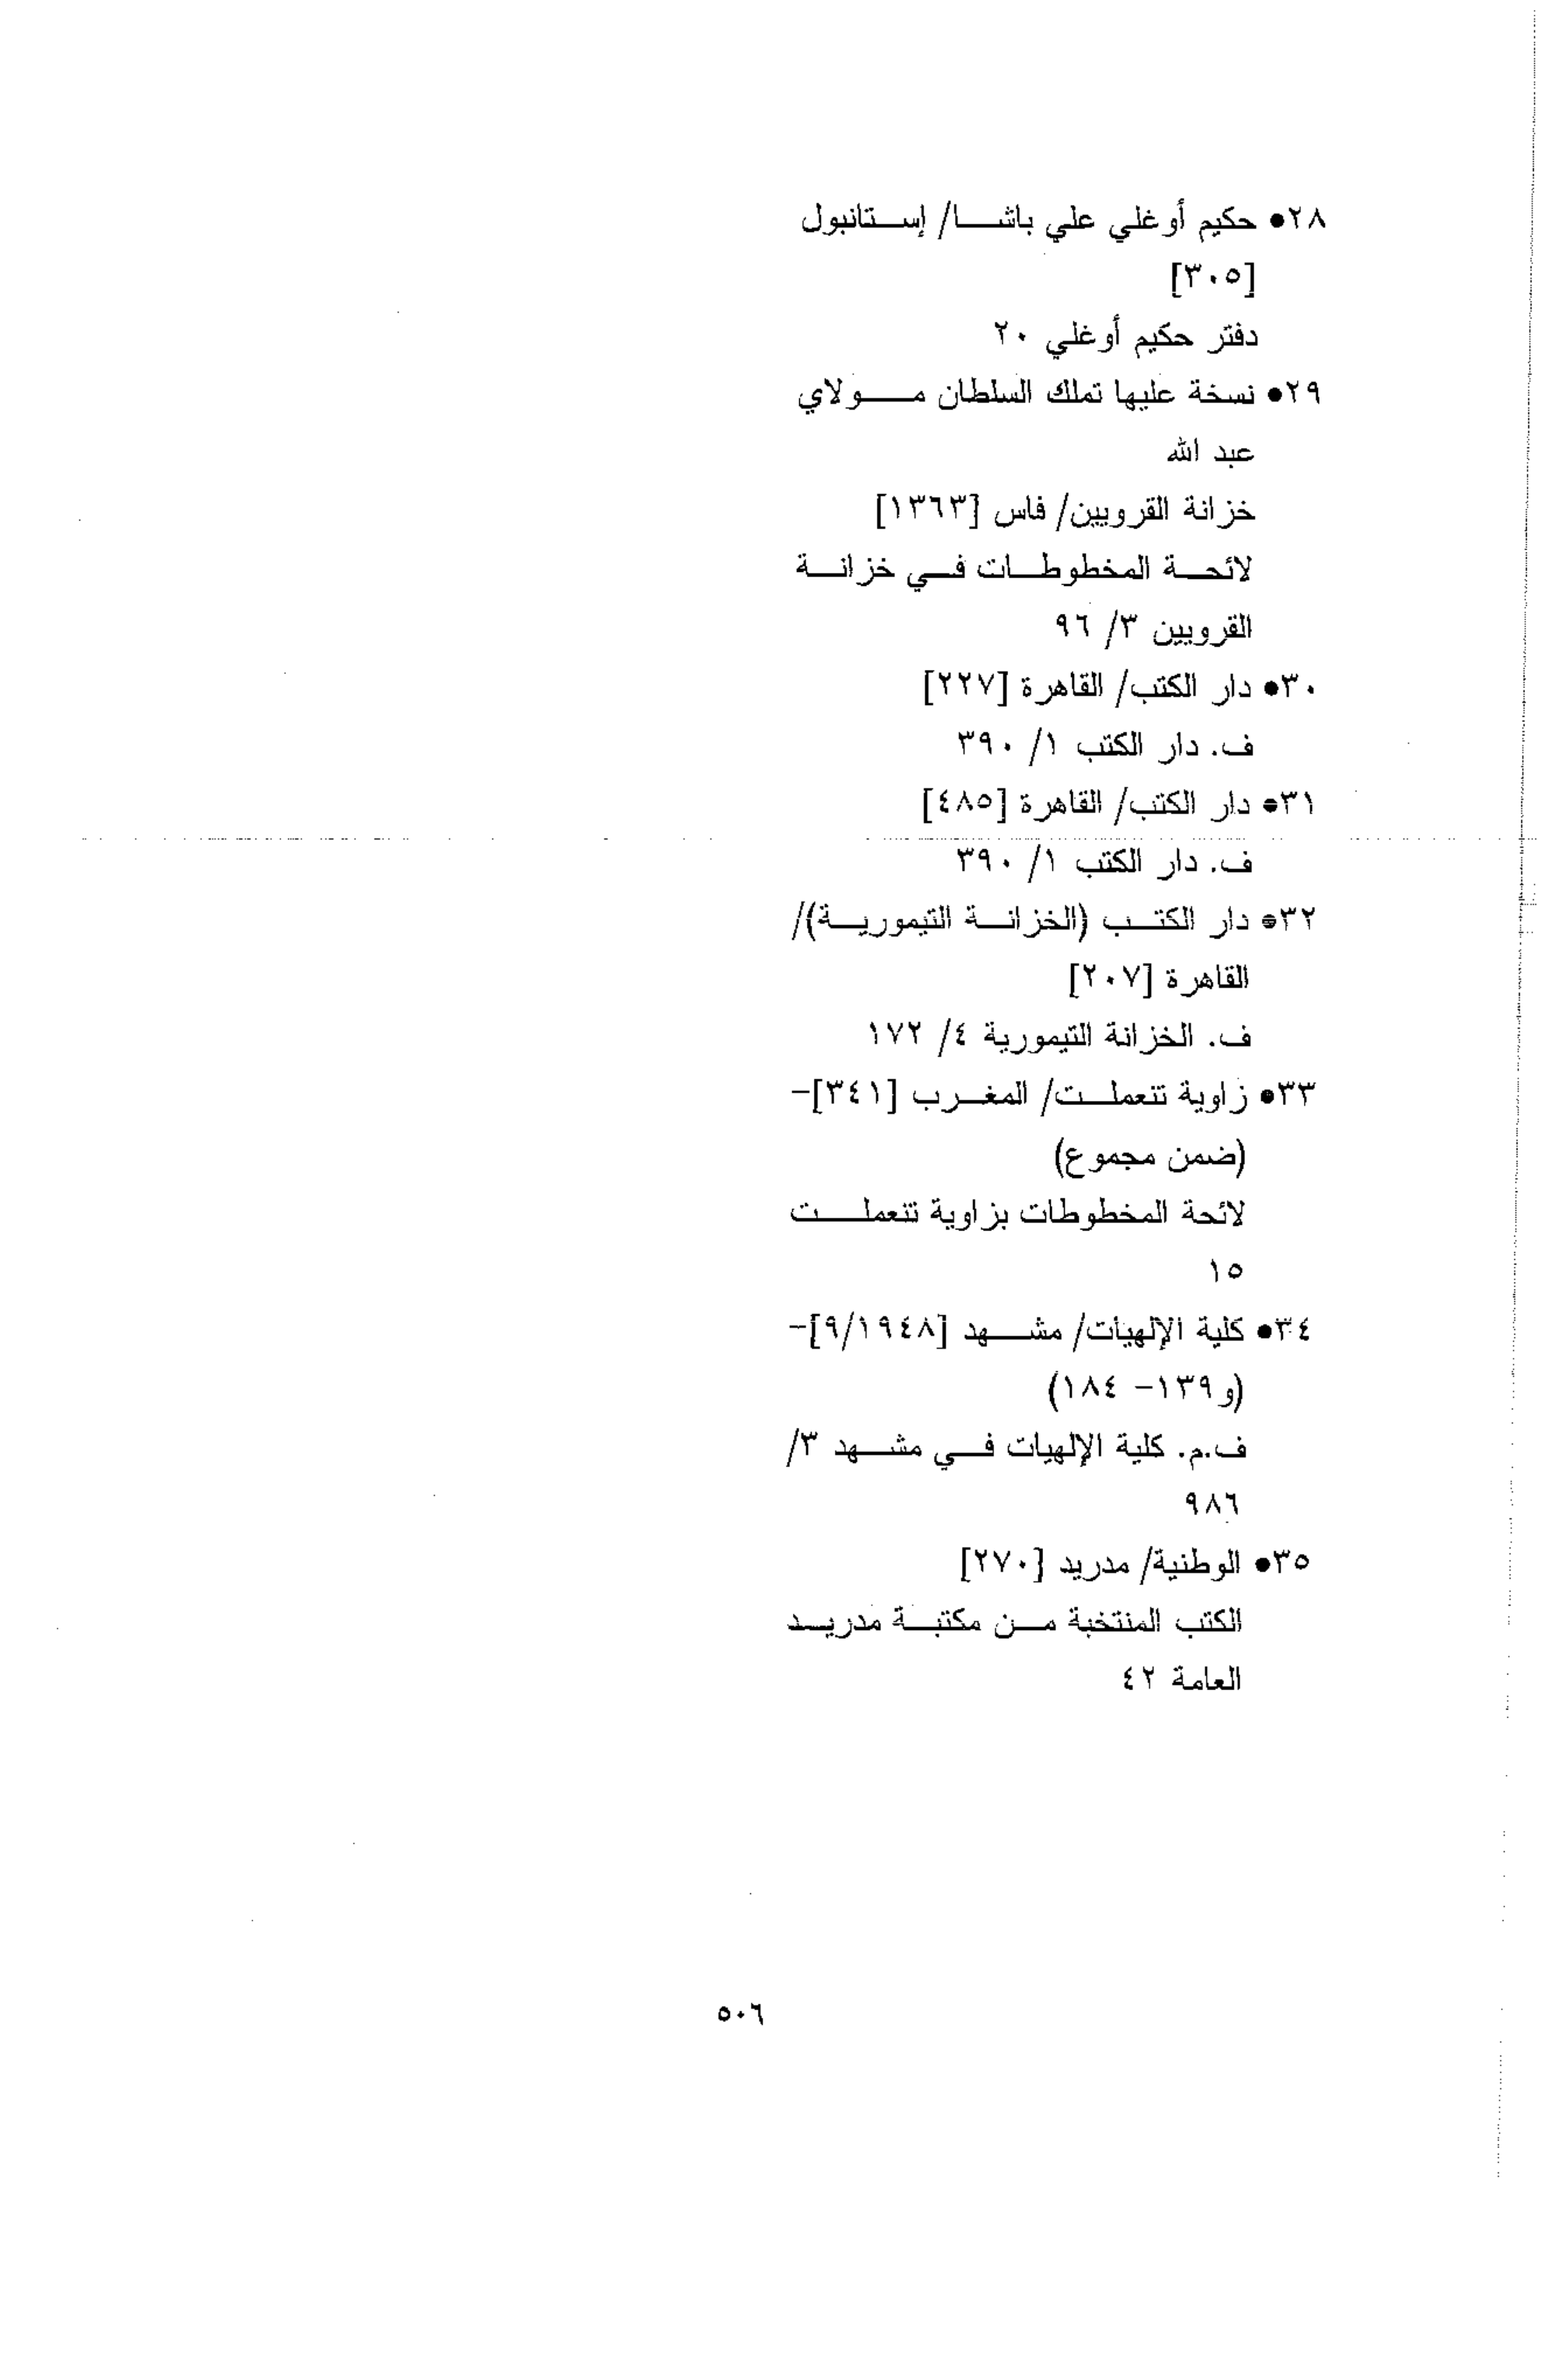 ٢٨● حكيم أوغلي علي باشا/ إستانبول
[٣٠٥]
دفتر حكيم أوغلي ٢٠
٢٩● نسخة عليها تملك السلطان مولاي
عبد الله
خزانة القرويين/ فاس [١٣٦٣]
لائحة المخطوطات في خزانة
القرويين ٣/ ٩٦
٣٠● دار الكتب/ القاهرة [٢٢٧]
ف. دار الكتب ١/ ٣٩٠
٣١● دار الكتب/ القاهرة [٤٨٥]
ف. دار الكتب ١/ ٣٩٠
٣٢● دار الكتب (الخزانة التيمورية)/
القاهرة [٢٠٧]
ف. الخزانة التيمورية ٤/ ١٧٢
٣٣● زاوية تنعملت/ المغرب [٣٤١]-
(ضمن مجموع)
لائحة المخطوطات بزاوية تنعملت
١٥
٣٤● كلية الإلهيات/ مشهد [٩/١٩٤٨]-
(و١٣٩- ١٨٤)
ف.م. كلية الإلهيات في مشهد ٣/
٩٨٦
٣٥● الوطنية/ مدريد [٢٧٠]
الكتب المنتخبة من مكتبة مدريد
العامة ٤٢
٥٠٦